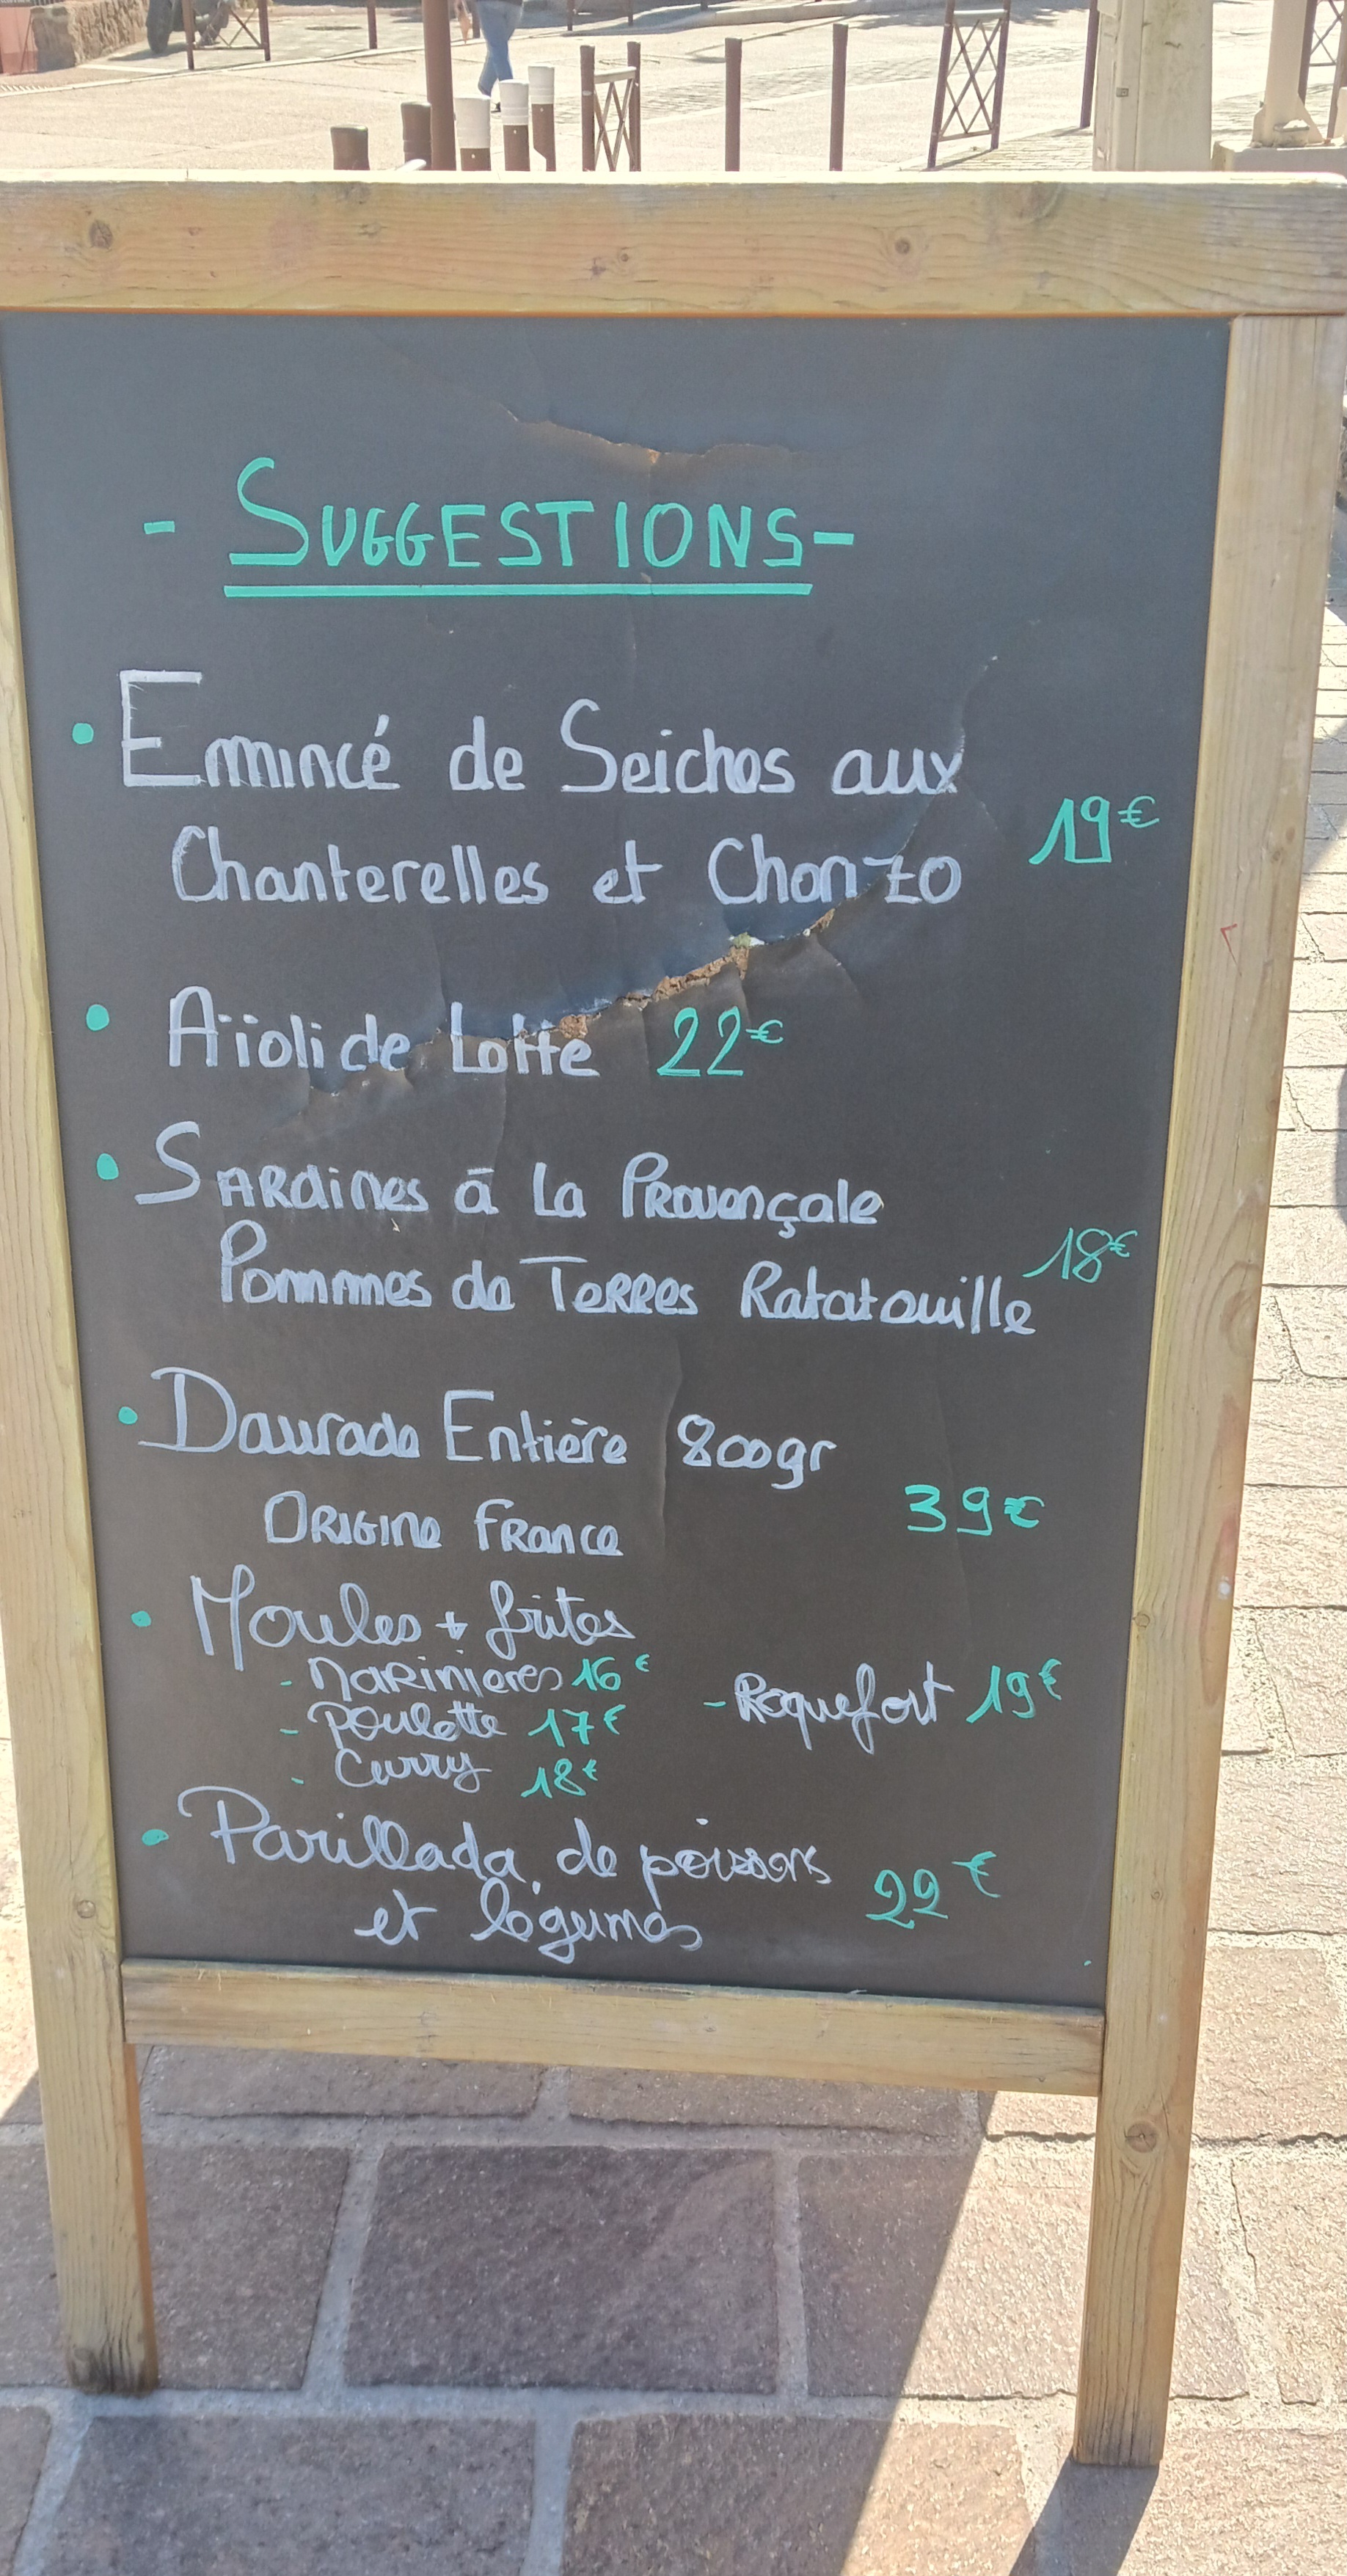 - SUGGESTIONS-
• Emincé de Seiches aux
Chanterelles et Chorizo 19€
• Aïoli de Lotte 22€
• SARdines à la PRovençale
Pommes de TeRRes Ratatouille 18€
• Daurade Entière 800gr
ORiGine FRance 39€
• Moules + frites
- MaRinieres 16€
- Roquefort 19€
- Poulette 17€
- Curry 18€
• Parillada de poissons
et légumes 22€